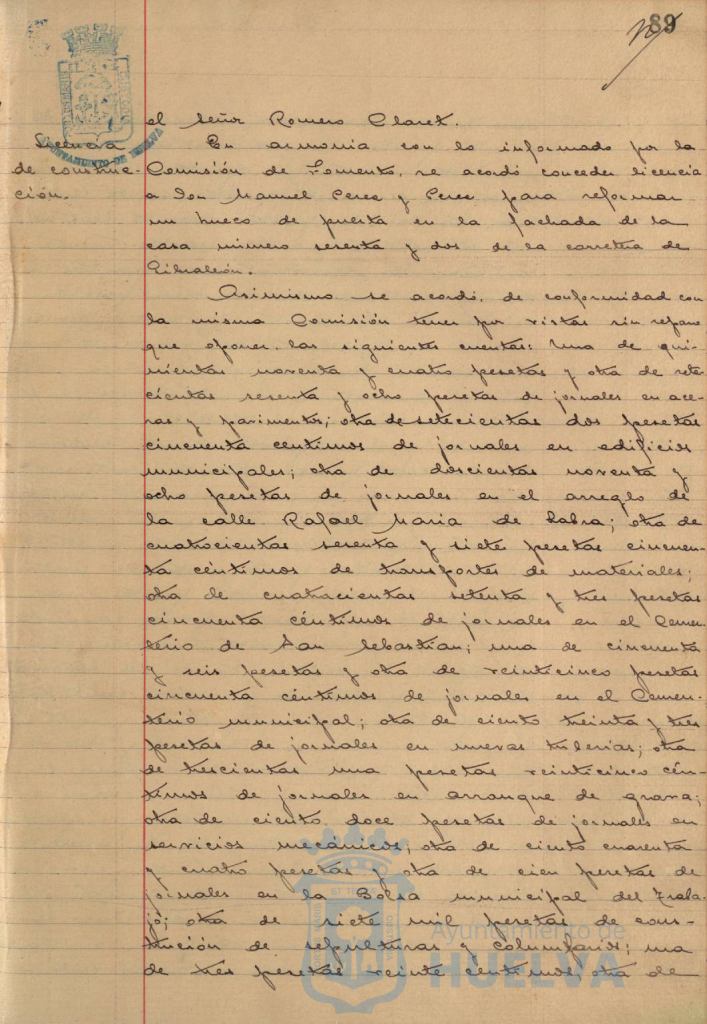 89
el Señor Romero Claret.
Licencia
de construc-
ción.
En armonia con lo informado por la
Comisión de Fomento, se acordó conceder licencia
a Don Manuel Perez y Perez para reformar
un hueco de puerta en la fachada de la
casa número sesenta y dos de la carretera de
Gibraleón.
Asimismo se acordó, de conformidad con
la misma Comisión tener por vistas sin reparo
que oponer las siguientes cuentas: Una de qui-
nientas noventa y cuatro pesetas y otra de sete-
cientas sesenta y ocho pesetas de jornales en ace-
ras y pavimentos; otra de setecientas dos pesetas
cincuenta céntimos de jornales en edificios
municipales; otra de doscientas noventa y
ocho pesetas de jornales en el arreglo de
la calle Rafael Maria de Labra; otra de
cuatrocientas sesenta y siete pesetas cincuen-
ta céntimos de transportes de materiales;
otra de cuatrocientas setenta y tres pesetas
cincuenta céntimos de jornales en el Cemen-
terio de San Sebastian; una de cincuenta
y seis pesetas y otra de veinticinco pesetas
cincuenta céntimos de jornales en el Cemen-
terio municipal; otra de ciento treinta y tres
pesetas de jornales en nuevas tuberias; otra
de trescientas una pesetas veinticinco cén-
timos de jornales en arranque de grava;
otra de ciento doce pesetas de jornales en
servicios mecánicos; otra de ciento cuarenta
y cuatro pesetas y otra de cien pesetas de
jornales en la Bolsa municipal del Traba-
jo; otra de siete mil pesetas de cons-
trución de sepulturas y columbarios; una
de tres pesetas veinte centimos; otra de
AYUNTAMIENTO DE HUELVA
Ayuntamiento de
HUELVA